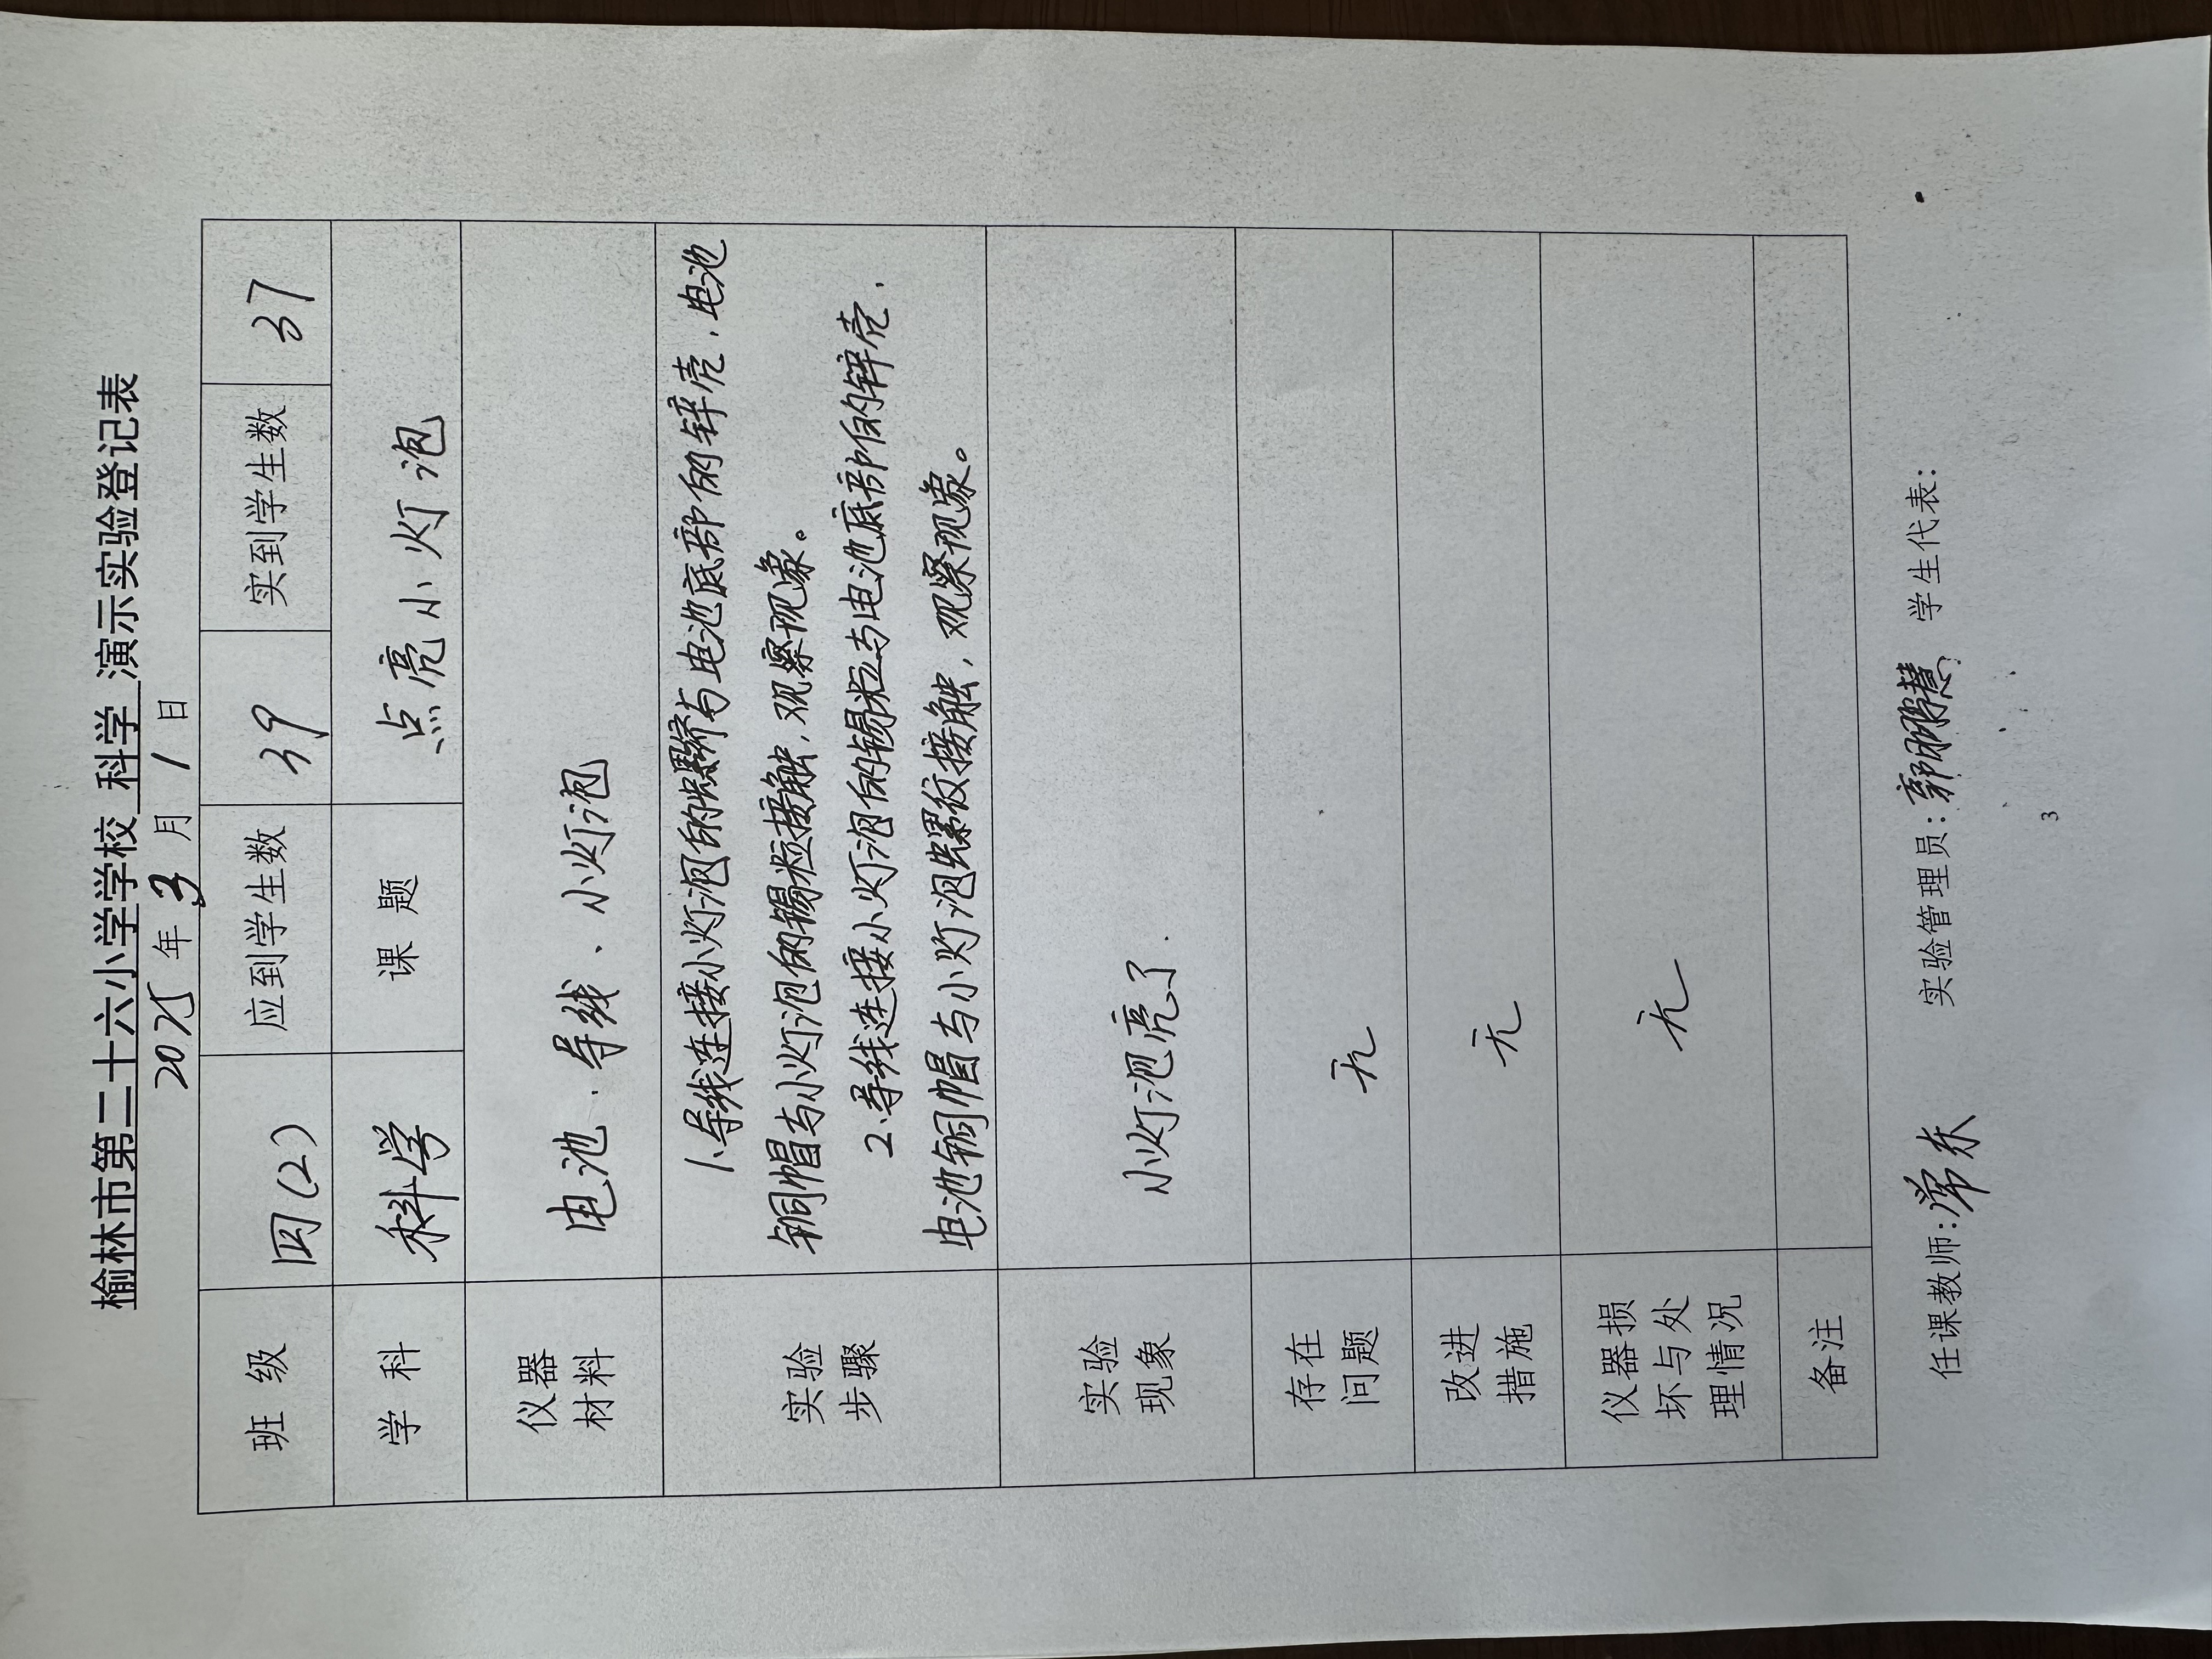 榆林市第二十六小学学校 科学 演示实验登记表
2025 年 3 月 1 日
班 级 四(2) 应到学生数 39 实到学生数 37
学 科 科学 课 题 点亮小灯泡
仪器
材料
电池、导线、小灯泡
实验
步骤
1.导线连接小灯泡的螺纹与电池底部的锌壳,电池
铜帽与小灯泡的锡粒接触,观察现象。
2.导线连接小灯泡的锡粒与电池底部的锌壳,
电池铜帽与小灯泡螺纹接触,观察现象。
实验
现象
小灯泡亮了.
存在
问题
无
改进
措施
无
仪器损
坏与处
理情况
无
备注
任课教师:常东 实验管理员:郭鹏慧 学生代表:
3